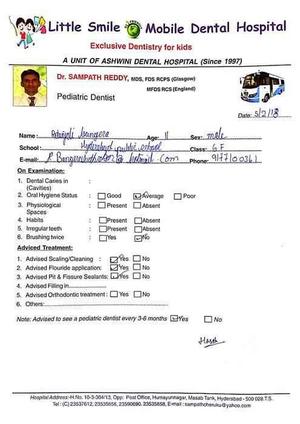 Little Smile Mobile Dental Hospital
Exclusive Dentistry for kids
A UNIT OF ASHWINI DENTAL HOSPITAL (Since 1997)
Dr. SAMPATH REDDY, MDS, FDS RCPS (Glasgow)
MFDS RCS (England)
Pediatric Dentist
Date: 5/2/18
Name: Age: 11 Sex: male
School: Hyderabad public school Class: G F
E-mail: hotmail.com Phone: 9177100361
On Examination:
1. Dental Caries in :
(Cavities)
2. Oral Hygiene Status : Good Average Poor
3. Physiological : Present Absent
Spaces
4. Habits : Present Absent
5. Irregular teeth : Present Absent
6. Brushing twice : Yes No
Adviced Treatment:
1. Advised Scaling/Cleaning : Yes No
2. Advised Flouride application: Yes No
3. Advised Pit & Fissure Sealants: Yes No
4. Advised Filling in
5. Advised Orthodontic treatment : Yes No
6. Others:
Note: Advised to see a pediatric dentist every 3-6 months Yes No
Hospital Address: H.No. 10-3-304/13, Opp: Post Office, Humayunnagar, Masab Tank, Hyderabad - 500 028 T.S.
Tel: (C) 23537612, 23535658, 23590690, 23535658, E-mail: sampathcheruku@yahoo.com